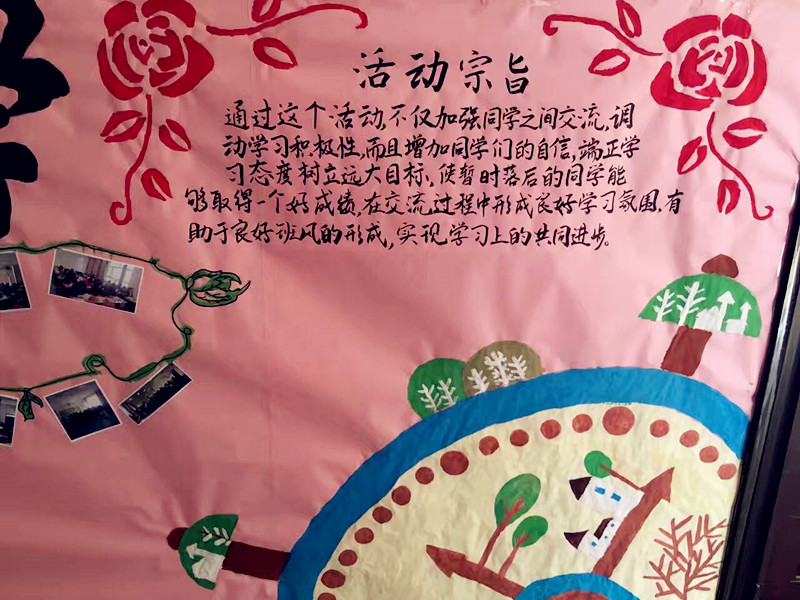 活动宗旨
通过这个活动,不仅加强同学之间交流,调
动学习积极性,而且增加同学们的自信,端正学
习态度树立远大目标,使暂时落后的同学能
够取得一个好成绩,在交流过程中形成良好学习氛围.有
助于良好班风的形成,实现学习上的共同进步。